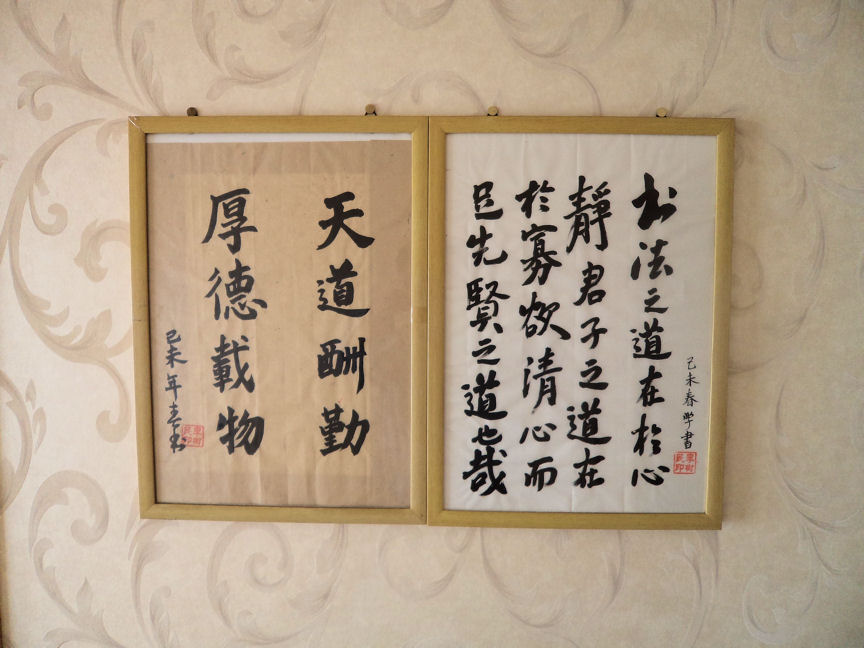 书法之道在於心
靜君子之道在
於寡欲清心而
足先賢之道也哉
己未春學書
天道酬勤
厚德載物
己未年春书